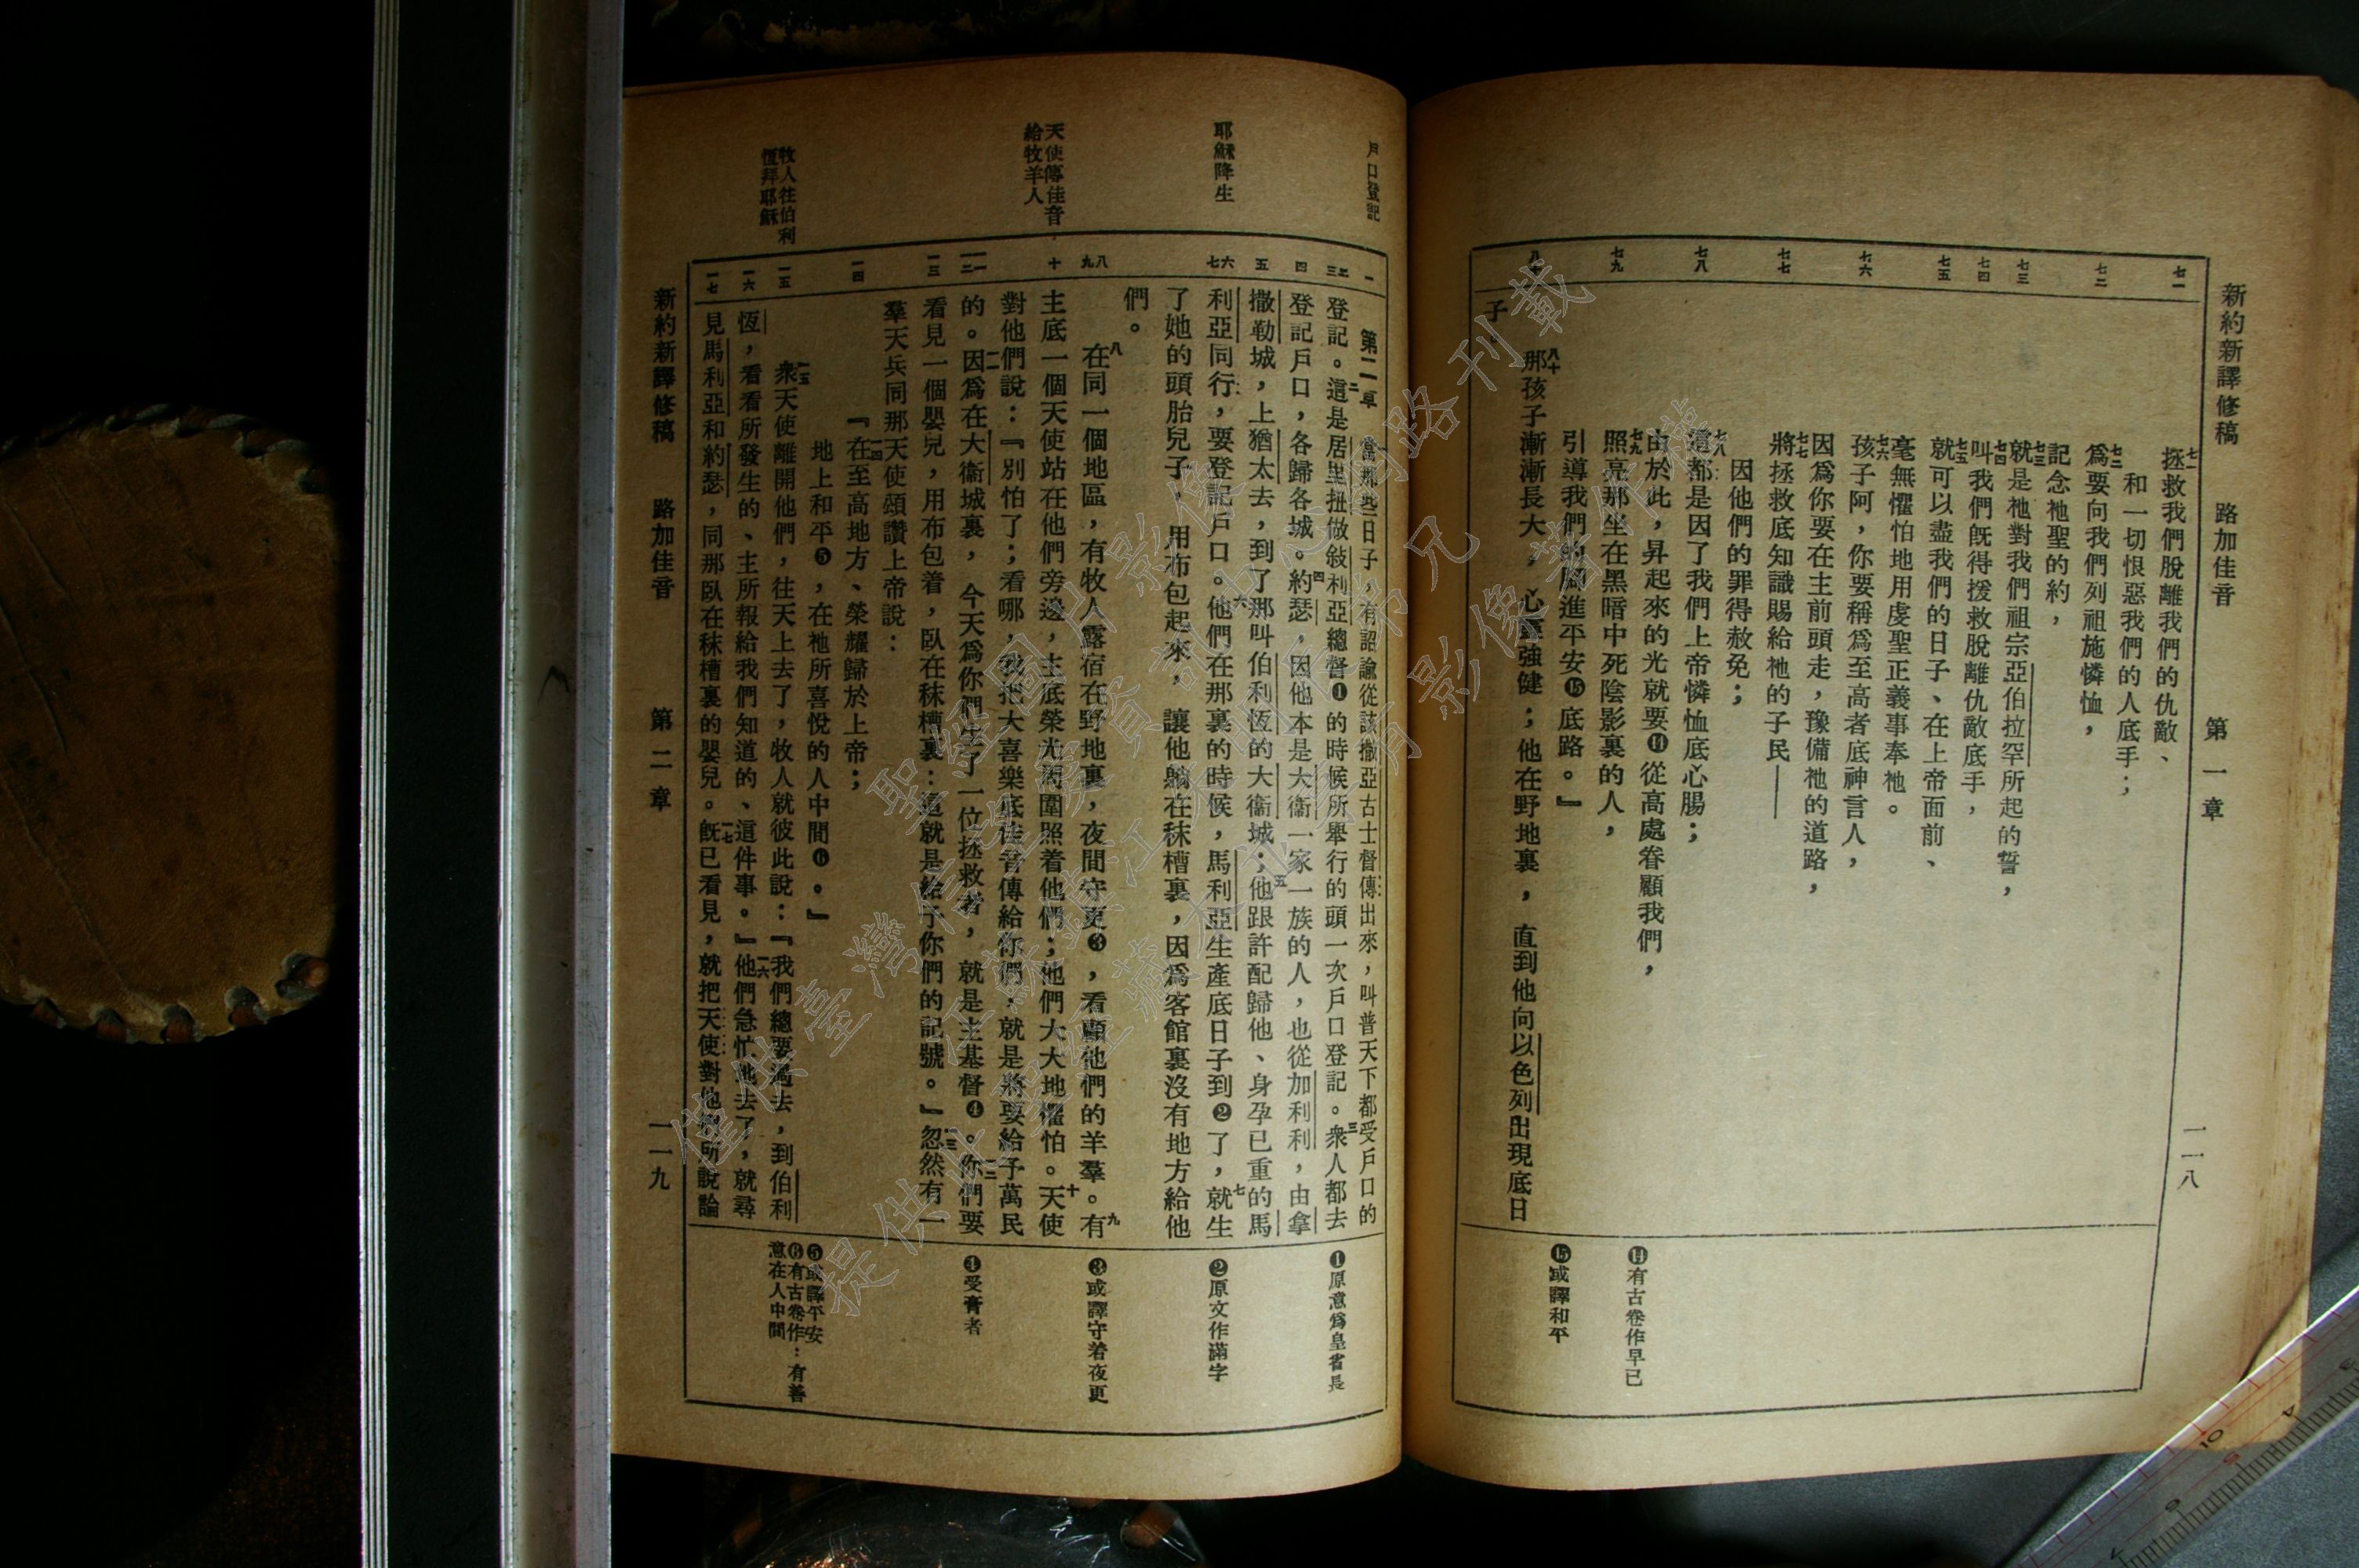 新約新譯修稿　路加佳音　第一章　一一八
七一
七二
七三
七四
七五
七六
七七
七八
七九
八十
七一拯救我們脫離我們的仇敵、
和一切恨惡我們的人底手；
七二爲要向我們列祖施憐恤，
記念祂聖的約，
七三就是祂對我們祖宗亞伯拉罕所起的誓，
七四叫我們旣得援救脫離仇敵底手，
七五就可以盡我們的日子、在上帝面前、
毫無懼怕地用虔聖正義事奉祂。
七六孩子阿，你要稱爲至高者底神言人，
因爲你要在主前頭走，豫備祂的道路，
七七將拯救底知識賜給祂的子民——
因他們的罪得赦免；
七八這都是因了我們上帝憐恤底心腸；
由於此，昇起來的光就要⓮從高處眷顧我們，
七九照亮那坐在黑暗中死陰影裏的人，
引導我們的腳進平安⓯底路。』
八十那孩子漸漸長大，心靈強健；他在野地裏，直到他向以色列出現底日
子。
⓮有古卷作早已
⓯或譯和平
戶口登記
耶穌降生
天使傳佳音
給牧羊人
牧人往伯利
恆拜耶穌
一
二三
四
五
六七
八九
十
一一一二
一三
一四
一五
一六
一七
第二章　當那些日子，有詔諭從該撒亞古士督傳出來，叫普天下都受戶口的
登記。二這是居里扭做敍利亞總督❶的時候所舉行的頭一次戶口登記。三衆人都去
登記戶口，各歸各城。四約瑟，因他本是大衞一家一族的人，也從加利利，由拿
撒勒城，上猶太去，到了那叫伯利恆的大衞城；五他跟許配歸他、身孕已重的馬
利亞同行，要登記戶口。六他們在那裏的時候，馬利亞生產底日子到❷了，七就生
了她的頭胎兒子，用布包起來，讓他躺在秣槽裏，因爲客館裏沒有地方給他
們。
八在同一個地區，有牧人露宿在野地裏，夜間守更❸，看顧他們的羊羣。九有
主底一個天使站在他們旁邊，主底榮光周圍照着他們；他們大大地懼怕。十天使
對他們說：『別怕了；看哪，我把大喜樂底佳音傳給你們，就是將要給予萬民
的。一一因爲在大衞城裏，今天爲你們生了一位拯救者，就是主基督❹。一二你們要
看見一個嬰兒，用布包着，臥在秣槽裏：這就是給予你們的記號。』一三忽然有一
羣天兵同那天使頌讚上帝說：
一四『在至高地方、榮耀歸於上帝；
地上和平❺，在祂所喜悅的人中間❻。』
一五衆天使離開他們，往天上去了，牧人就彼此說：『我們總要過去，到伯利
恆，看看所發生的、主所報給我們知道的、這件事。』一六他們急忙地去了，就尋
見馬利亞和約瑟，同那臥在秣槽裏的嬰兒。一七旣已看見，就把天使對他們所說論
❶原意爲皇省長
❷原文作滿字
❸或譯守着夜更
❹受膏者
❺或譯平安
❻有古卷作：有善
意在人中間
新約新譯修稿　路加佳音　第二章　一一九